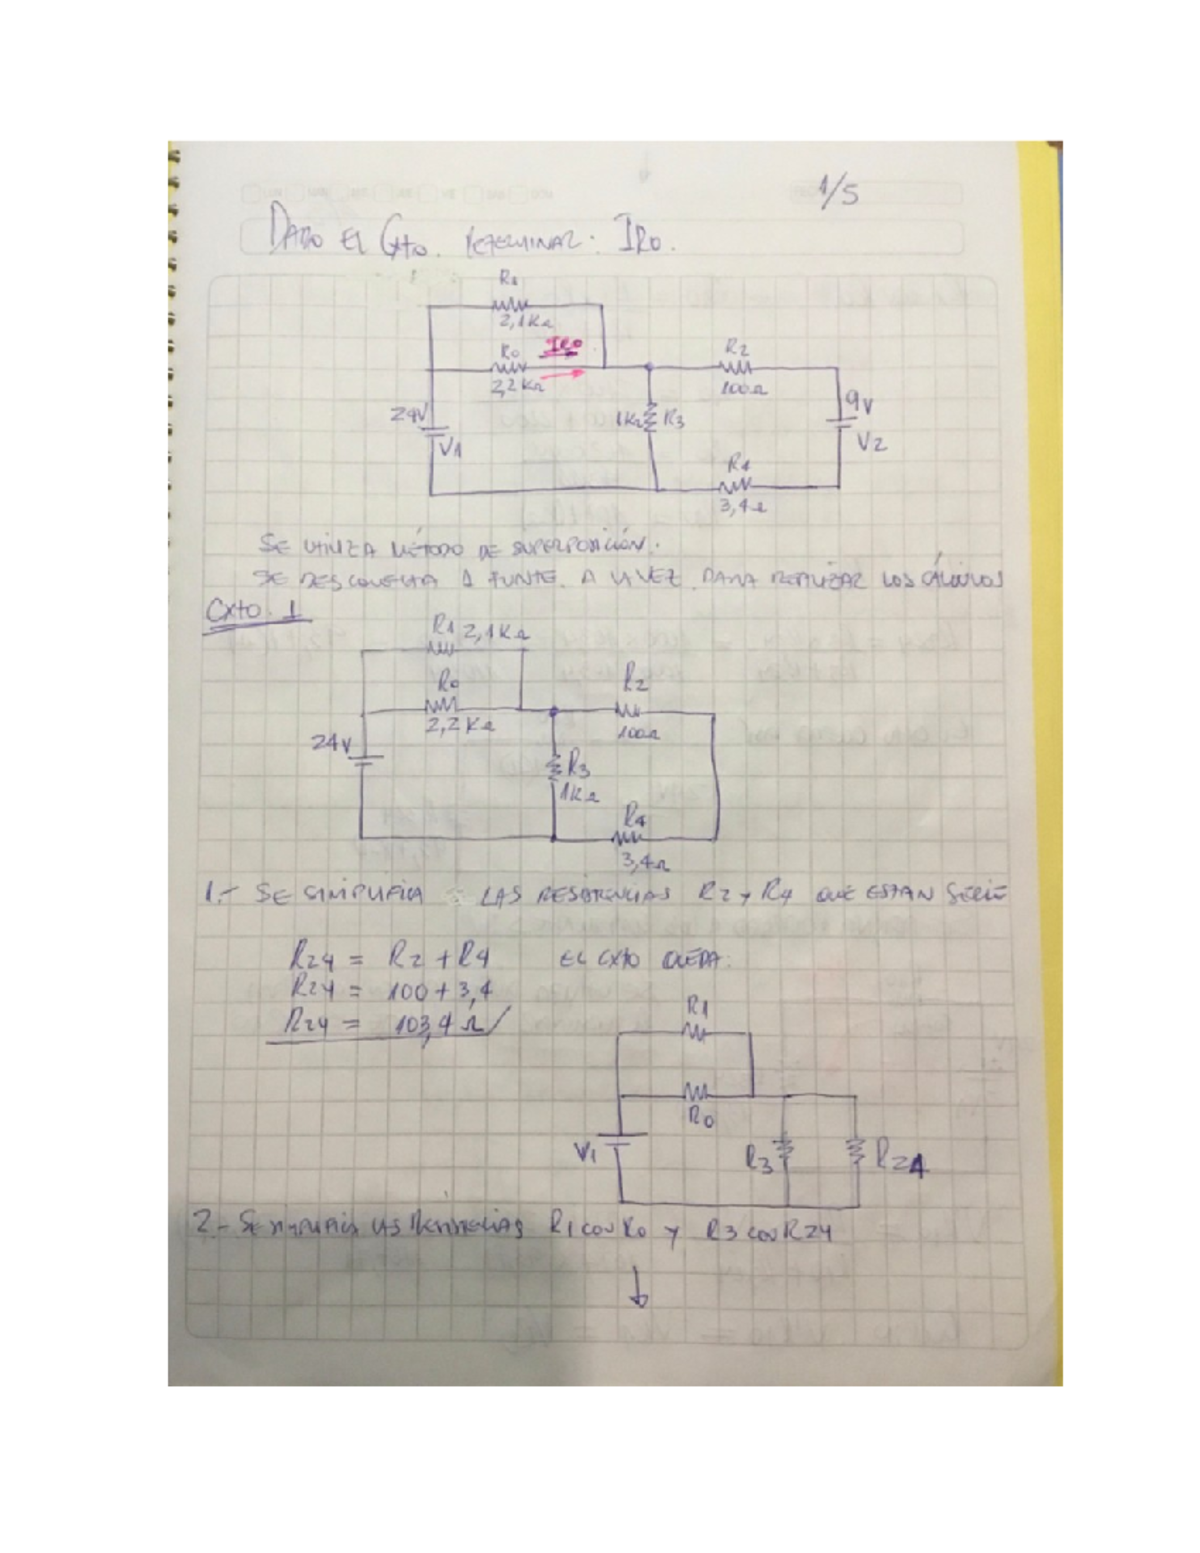 1/5
DADO EL Cxto. DETERMINAR: IR0.
R1
2,1KΩ
R0 IR0
2,2KΩ
R2
100Ω
24V
V1
1KΩ R3
9V
V2
R4
3,4Ω
SE UTILIZA MÉTODO DE SUPERPOSICIÓN.
SE DESCONECTA 1 FUNTE. A LA VEZ. PARA REALIZAR LOS CÁLCULOS
Cxto. 1
R1 2,1KΩ
R0
2,2KΩ
R2
100Ω
24V
R3
1KΩ
R4
3,4Ω
1.- SE SIMPLIFICA LAS RESISTENCIAS R2 y R4 QUE ESTAN SERIE
R24 = R2 + R4 EL CXTO QUEDA:
R24 = 100 + 3,4
R24 = 103,4 Ω
R1
R0
V1
R3
R24
2.- SE SIMPLIFICA LAS RESISTENCIAS R1 CON R0 y R3 CON R24